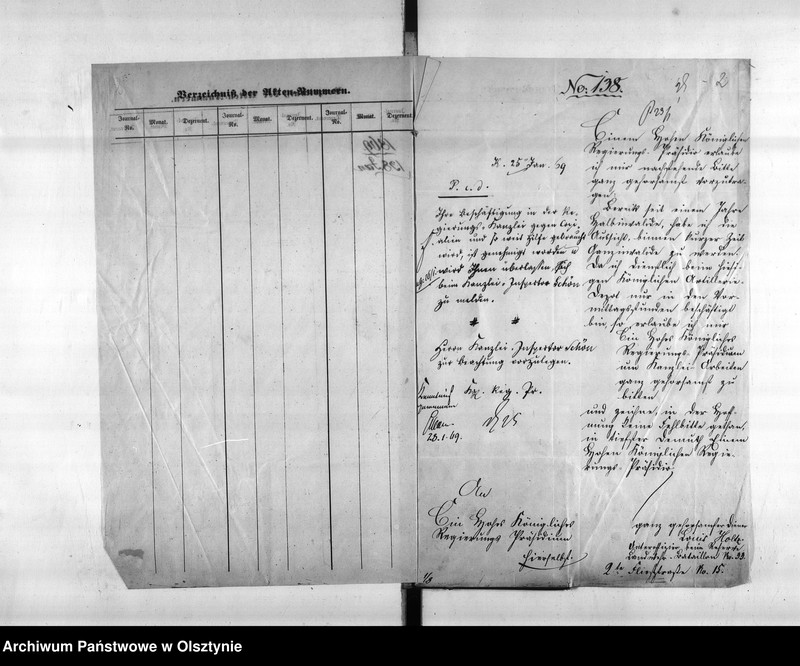 Verzeichniß der Akten-Nummern.
Journal-No. Monat. Dezernent. Journal-No. Monat. Dezernent. Journal-No. Monat. Dezernent.
No. 138.
2
K. 25 Jan. 69
P. c. d.
Ihre Beschäftigung in der Re-
gierungs-Kanzlei gegen Copi-
alien und so weit Hilfe gebraucht
wird, ist genehmigt worden u
wird Ihnen überlassen, Sich
beim Kanzlei-Inspector Schön
zu melden.
Herrn Kanzlei-Inspector Schön
zur Beachtung vorzulegen.
Kg. Reg. Pr.
Kenntniß
genommen
Schön
25.1.69.
Einem Hohen Königlichen
Regierungs-Präsidio erlaube
ich mir nachstehende Bitte
ganz gehorsamst vorzutra-
gen
Bereits seit einem Jahre
Halbinvalide, habe ich die
Aussicht, binnen kurzer Zeit
Ganzinvalide zu werden.
Da ich dienstlich beim hiesi-
gen Königlichen Artillerie-
Depot nur in den Vor-
mittagsstunden beschäftigt
bin, so erlaube ich mir
Ein Hohes Königliches
Regierungs-Präsidium
um Kanzlei-Arbeiten
ganz gehorsamst zu
bitten
und zeichne, in der Hoff-
nung keine Fehlbitte gethan,
in tiefster Demuth Einem
Hohen Königlichen Regie-
rungs-Präsidio
ganz gehorsamster Diener
Louis Holtz
Unteroffizier beim Reserve
Landwehr-Bataillon No. 33.
2te Fließstraße No. 15.
An
Ein Hohes Königliches
Regierungs Präsidium
hierselbst
1/3
Archiwum Państwowe w Olsztynie